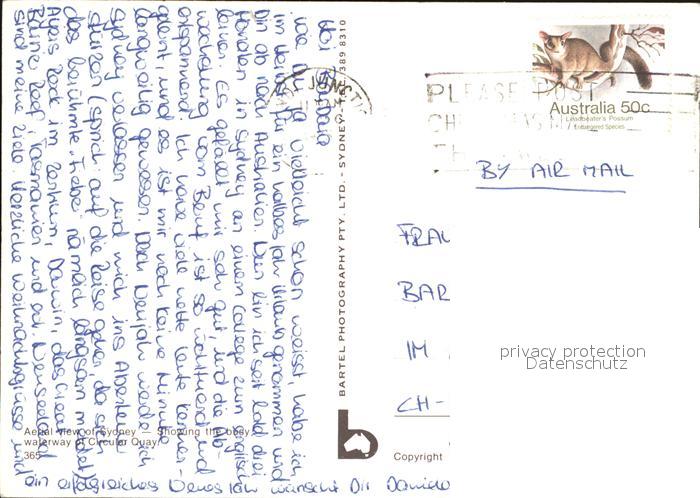 Hoi Barbara
wie Du ja vielleicht schon weisst, habe ich
im Herbst für ein halbes Jahr Urlaub genommen und
bin ab nach Australien. Nun bin ich seit bald drei
Monaten in Sydney an einem College zum englisch
lernen. Es gefällt mir sehr gut, und die Ab-
wechslung vom Beruf ist so wohltuend und
entspannend. Ich habe viele nette Leute kennen-
gelernt, und es ist mir noch keine Minute
langweilig gewesen. Nach Neujahr werde ich
Sydney verlassen und mich ins Abenteuer
stürzen (sprich auf die Reise gehen), da sich
das berühmte Fieber nämlich langsam meldet.
Ayers Rock im Zentrum, Darwin, das Great
Barrier Reef, Tasmanien und evt. Neuseeland
sind meine Ziele. Herzliche Weihnachtsgrüsse und
ein erfolgreiches Neues Jahr wünscht Dir Daniela
Aerial view of Sydney — Showing the busy
waterway of Circular Quay.
365
BARTEL PHOTOGRAPHY PTY. LTD. - SYDNEY - TEL. 389 8310
b
Copyright
PLEASE POST
Australia 50c
Leadbeater's Possum
Endangered Species
BY AIR MAIL
FRAU
BAR
IM
CH-
privacy protection
Datenschutz